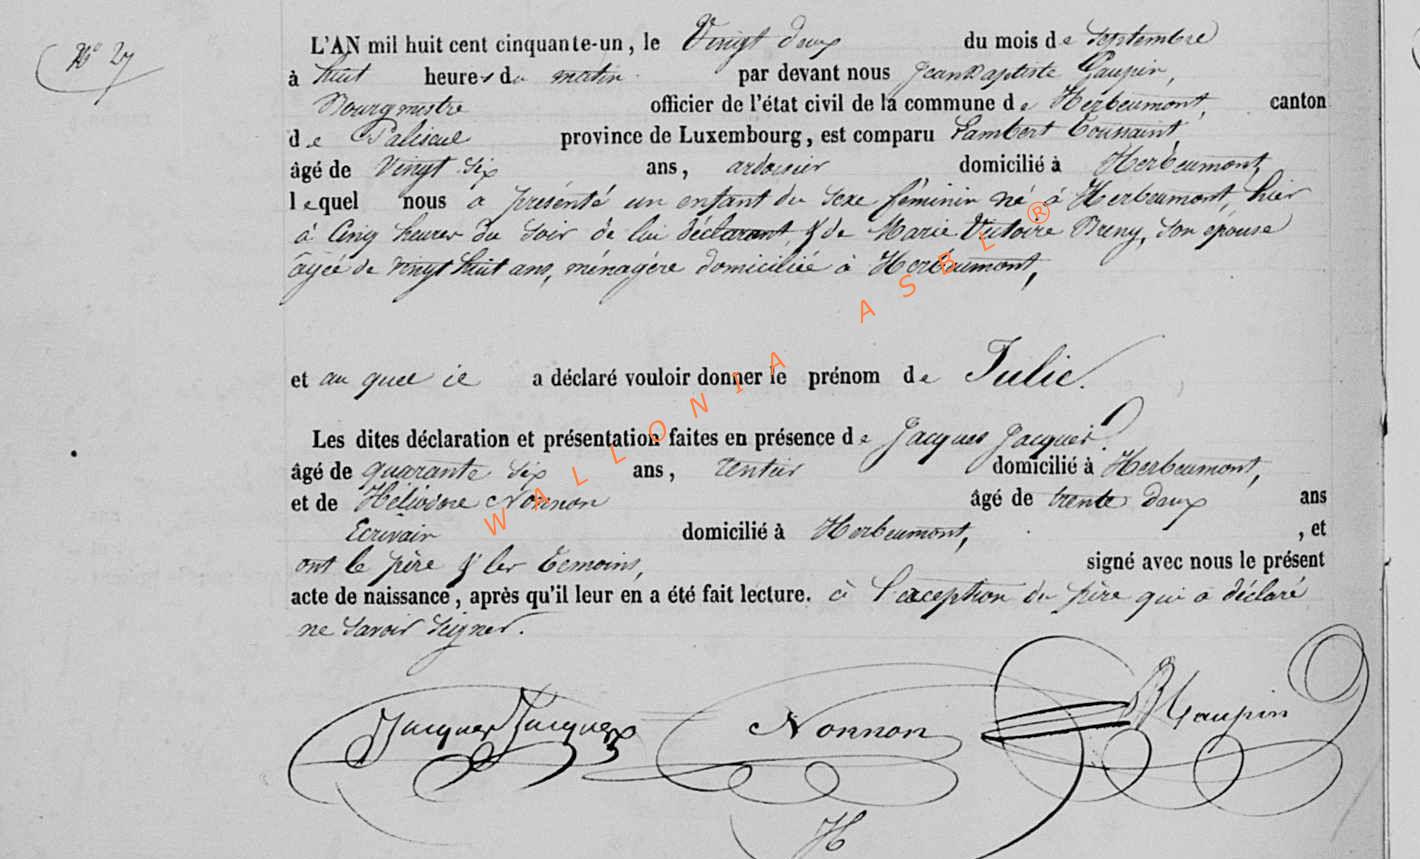 N° 27
L'AN mil huit cent cinquante-un, le Vingt deux du mois de Septembre
à huit heures du matin par devant nous Jean Baptiste Gaupin,
Bourgmestre officier de l'état civil de la commune de Herbeumont, canton
de Paliseul province de Luxembourg, est comparu Lambert Toussaint
âgé de Vingt six ans, ardoisier domicilié à Herbeumont,
lequel nous a présenté un enfant du sexe féminin né à Herbeumont, hier
à Cinq heures du Soir de lui déclarant, & de Marie Victoire Breny, son épouse
âgée de vingt huit ans, ménagère domiciliée à Herbeumont,
et au quel il a déclaré vouloir donner le prénom de Julie.
Les dites déclaration et présentation faites en présence de Jacques Jacques
âgé de quarante six ans, rentier domicilié à Herbeumont,
et de Nonnon âgé de trente deux ans
Ecrivain domicilié à Herbeumont, , et
ont le père & les Temoins, signé avec nous le présent
acte de naissance, après qu'il leur en a été fait lecture. à l'exception du père qui a déclaré
ne savoir signer.
Jacques Jacques Nonnon Gaupin
H
WALLONIA ASBL ®